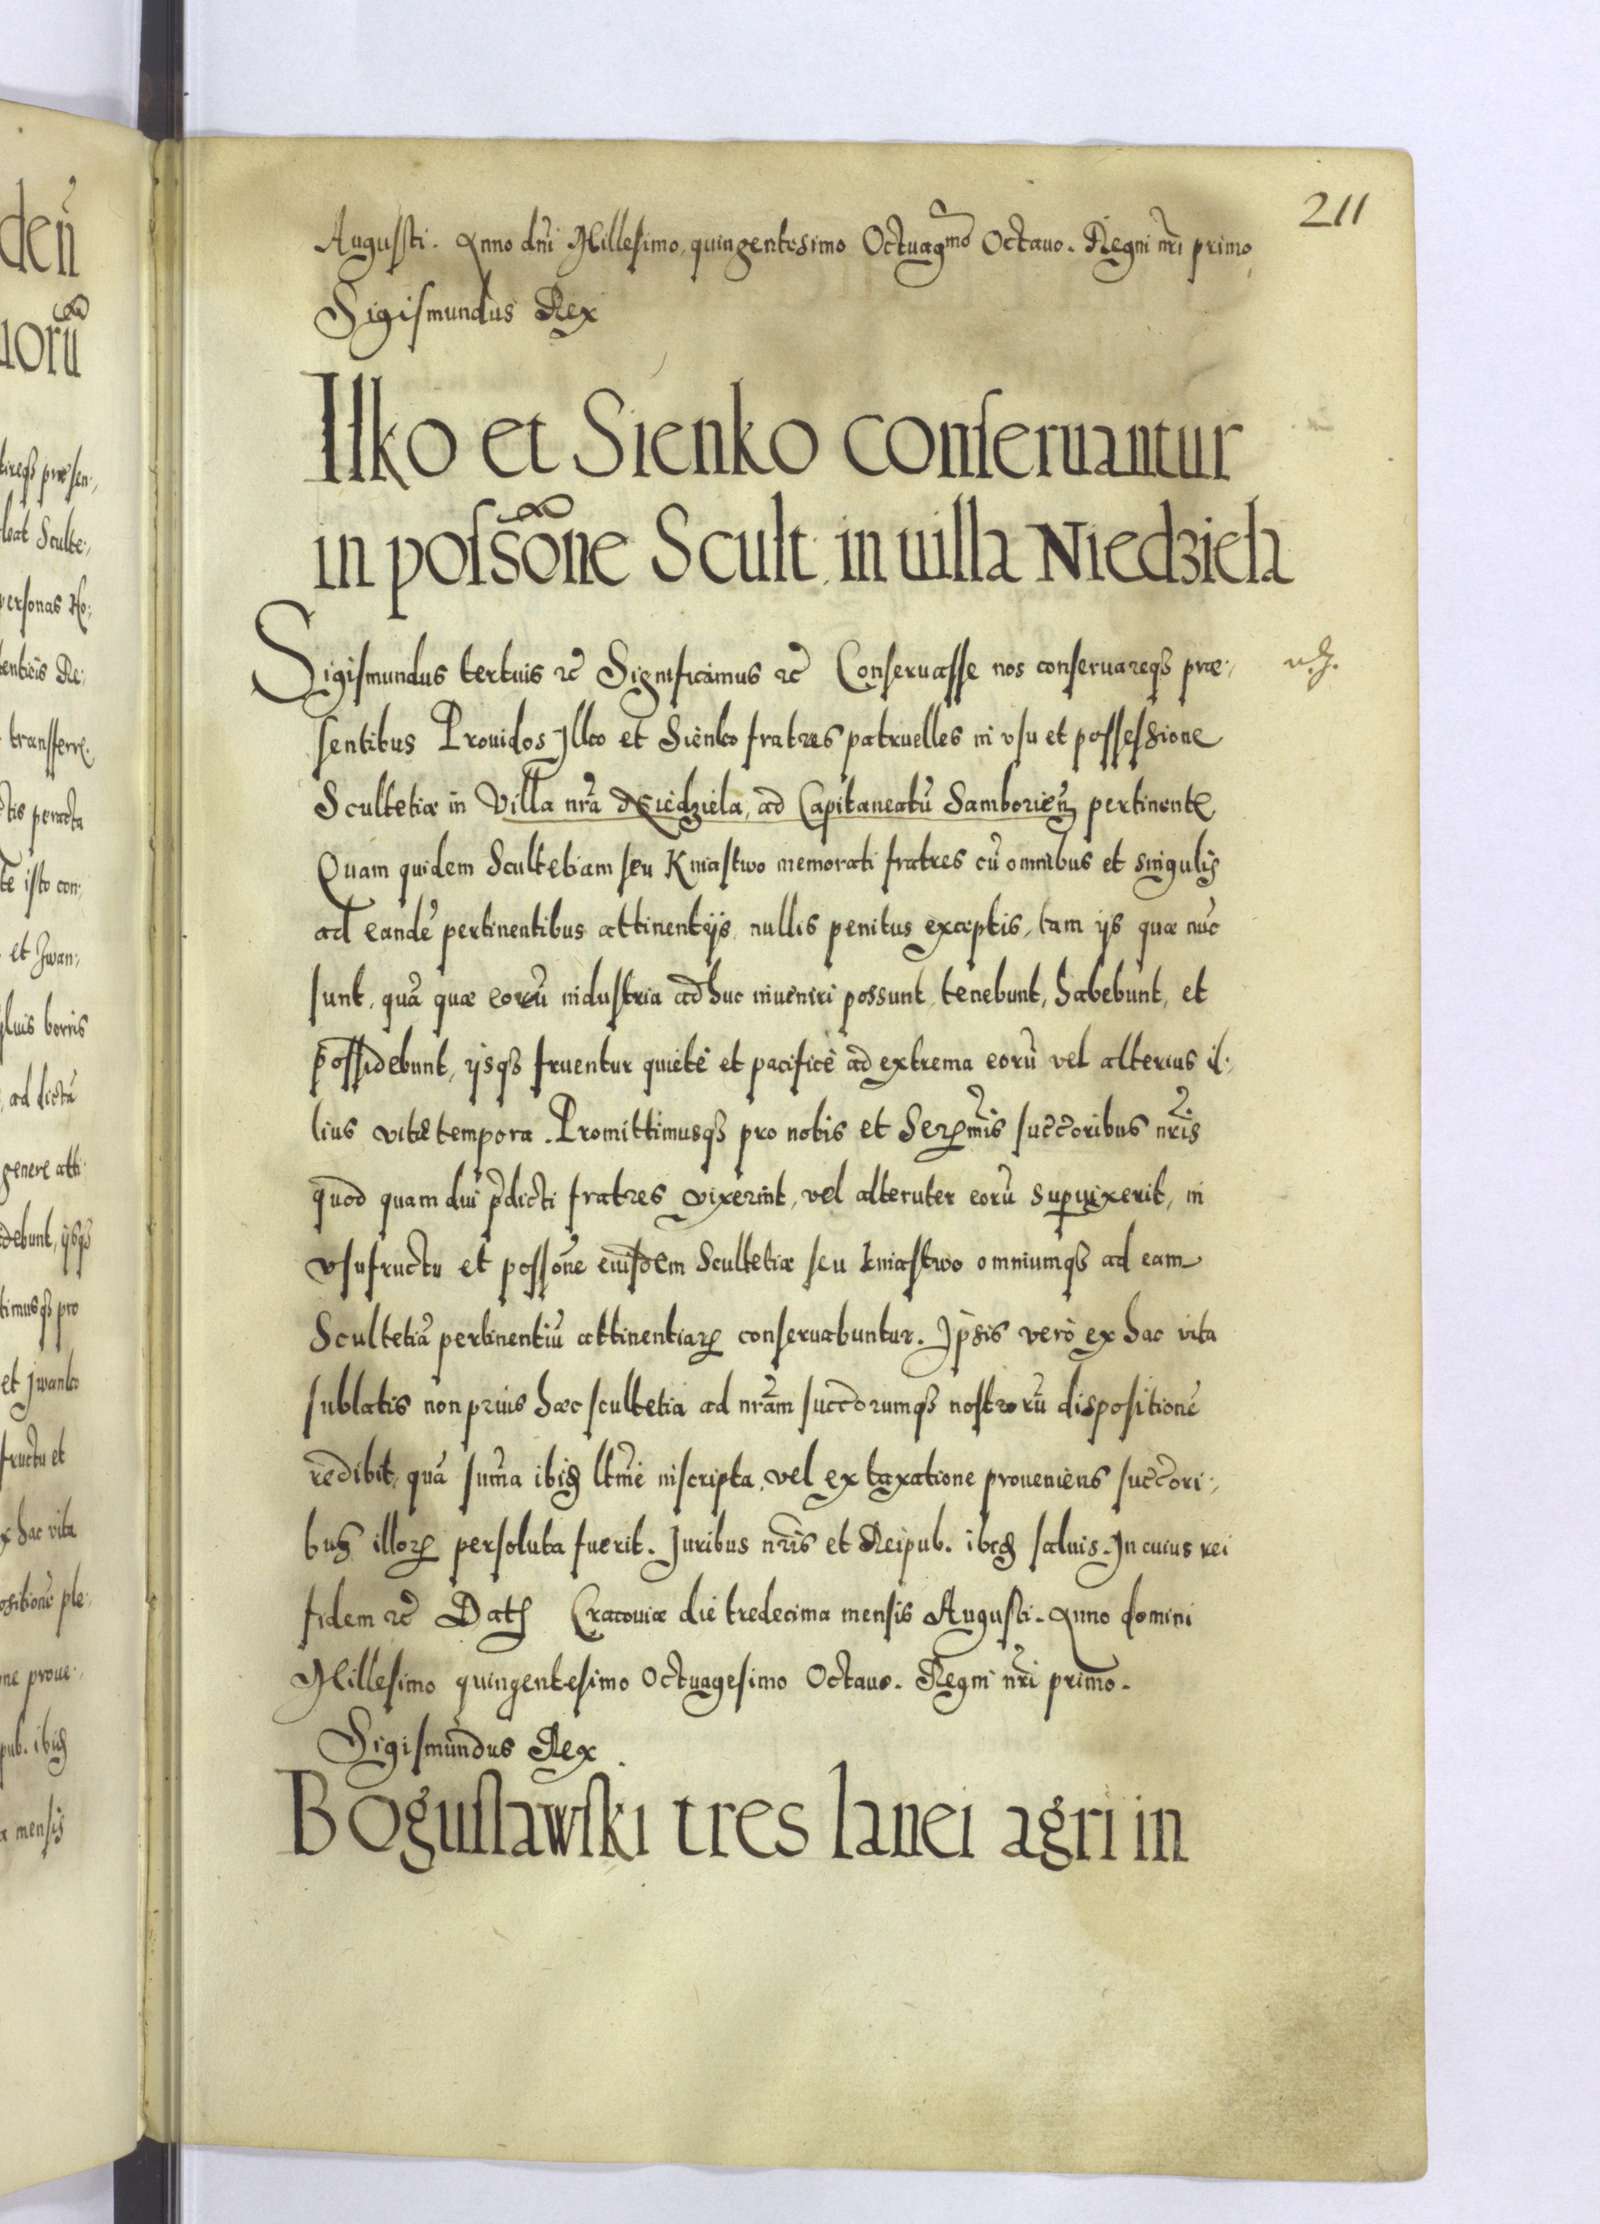 211
Augusti. Anno dñi Millesimo, quingentesimo Octuagᵐᵒ Octauo. Regni nr̃i primo
Sigismundus Rex
Ilko et Sienko conseruantur
in possõne Scult. in uilla Niedziela
Sigismundus tertius ꝛc̃ Significamus ꝛc̃ Conseruasse nos conseruareqȝ præ:
sentibus Prouidos Ilko et Sienko fratres patruelles in vsu et possessione
Scultetiæ in Villa nr̃a Niedziela, ad Capitaneatũ Samborieñ pertinenteɱ
Quam quidem Scultetiam seu Kniastwo memorati fratres cũ omnibus et singulis
ad eandẽ pertinentibus attinentijs nullis penitus exceptis, tam ijs quæ nũc
sunt, quã quæ eorũ industria adhuc inueniri possunt, tenebunt, habebunt, et
possidebunt, ijsqȝ fruentur quietè et pacificè ad extrema eorũ vel alterius il:
lius vitæ tempora. Promittimusqȝ pro nobis et Serꝫm̃is succ̃oribus nr̃is
quod quam diu p̃dicti fratres vixerint, vel alteruter eorũ supuixerit, in
vsufructu et possõne eiusdem Scultetiæ seu kniastwo omniumqȝ ad eam
Scultetiã pertinentiũ attinentiarꝫ conseruabuntur. Ipsis verò ex hac vita
sublatis non prius hæc scultetia ad nr̃am succ̃orumqȝ nostrorũ dispositionẽ
redibit, quã sum̃a ibiꝺ ltm̃e inscripta, vel ex taxatione proueniens succ̃ori:
bus illorꝫ persoluta fuerit. Juribus nr̃is et Reipub. ibiꝺ saluis. In cuius rei
fidem ꝛc̃ Datꝫ Cracouiæ die tredecima mensis Augusti. Anno domini
Millesimo quingentesimo Octuagesimo Octauo. Regni nr̃i primo.
Sigismundus Rex
Boguslawski tres lanei agri in